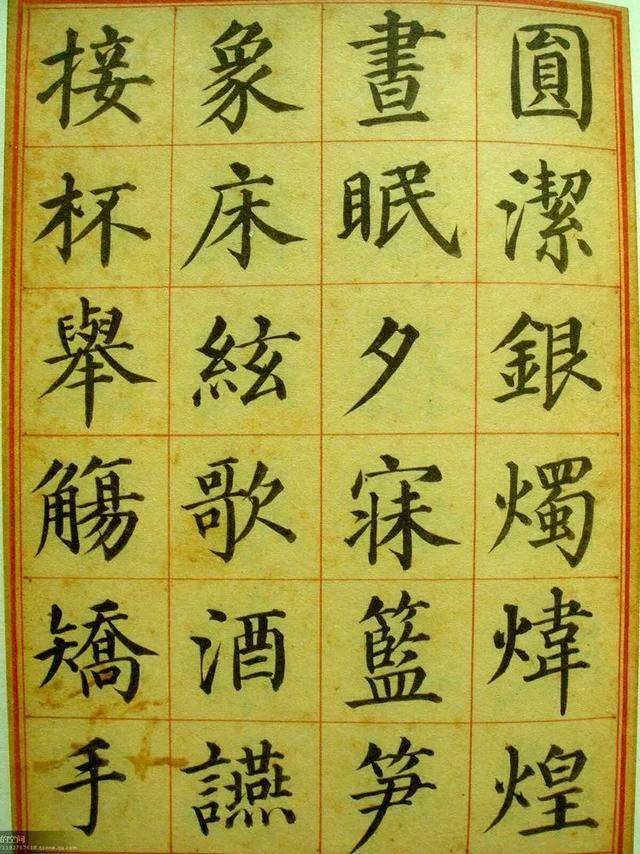 圓潔銀燭煒煌
晝眠夕寐籃笋
象床絃歌酒讌
接杯舉觴矯手
的空间